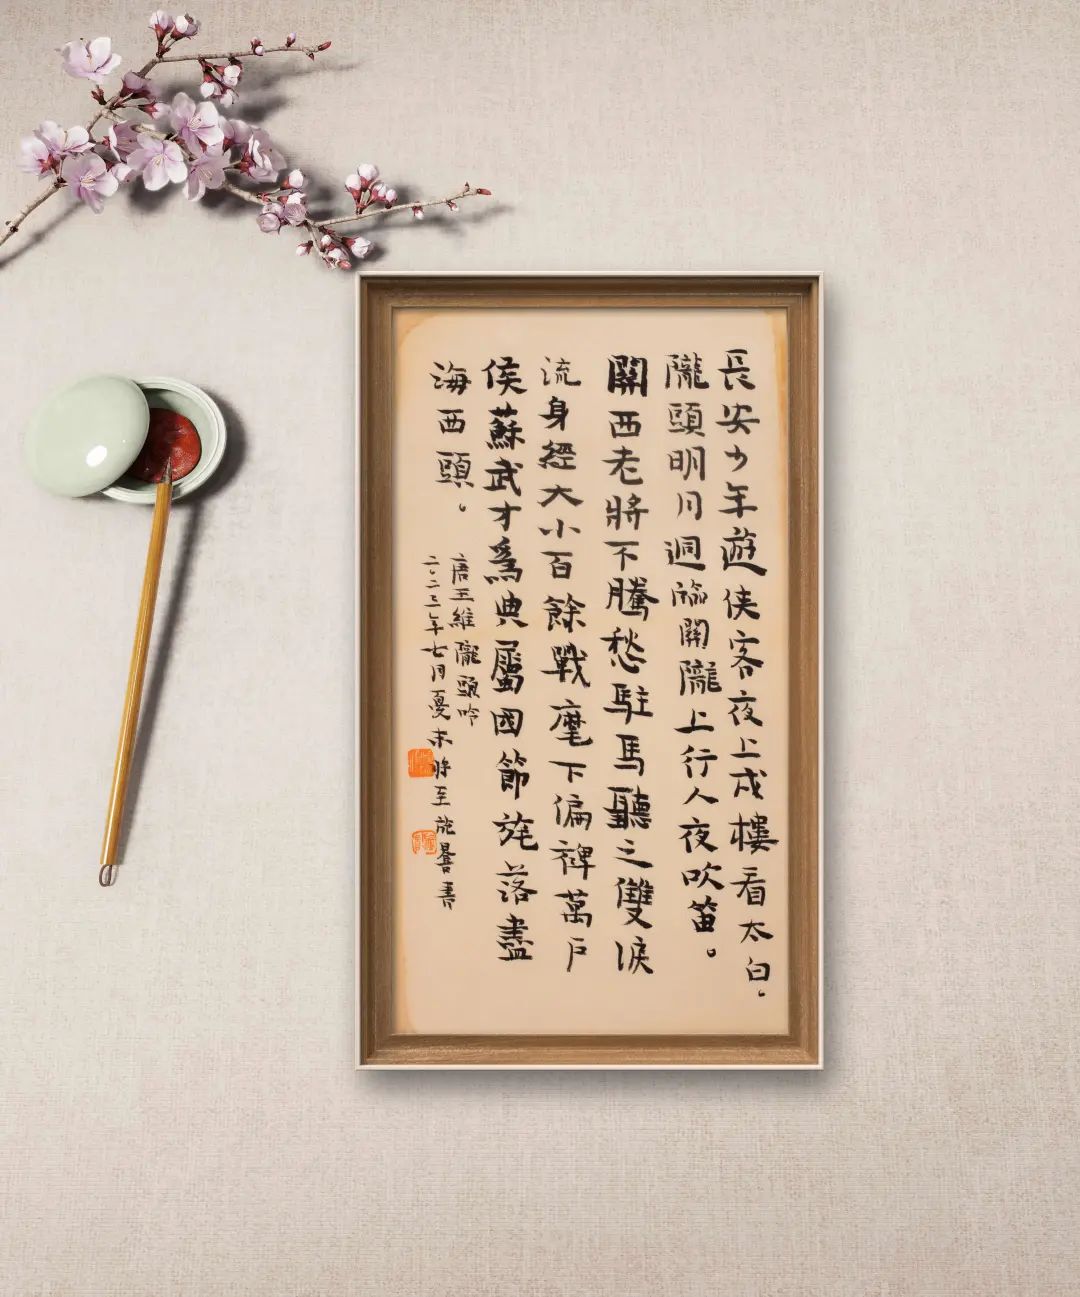 長安少年遊侠客夜上戍樓看太白。
隴頭明月迥臨關隴上行人夜吹笛。
關西老將不勝愁駐馬聽之雙淚
流身經大小百餘戰麾下偏裨萬戶
侯蘇武才為典屬國節旄落盡
海西頭。
唐王維隴頭吟
二〇二三年七月憂未將至